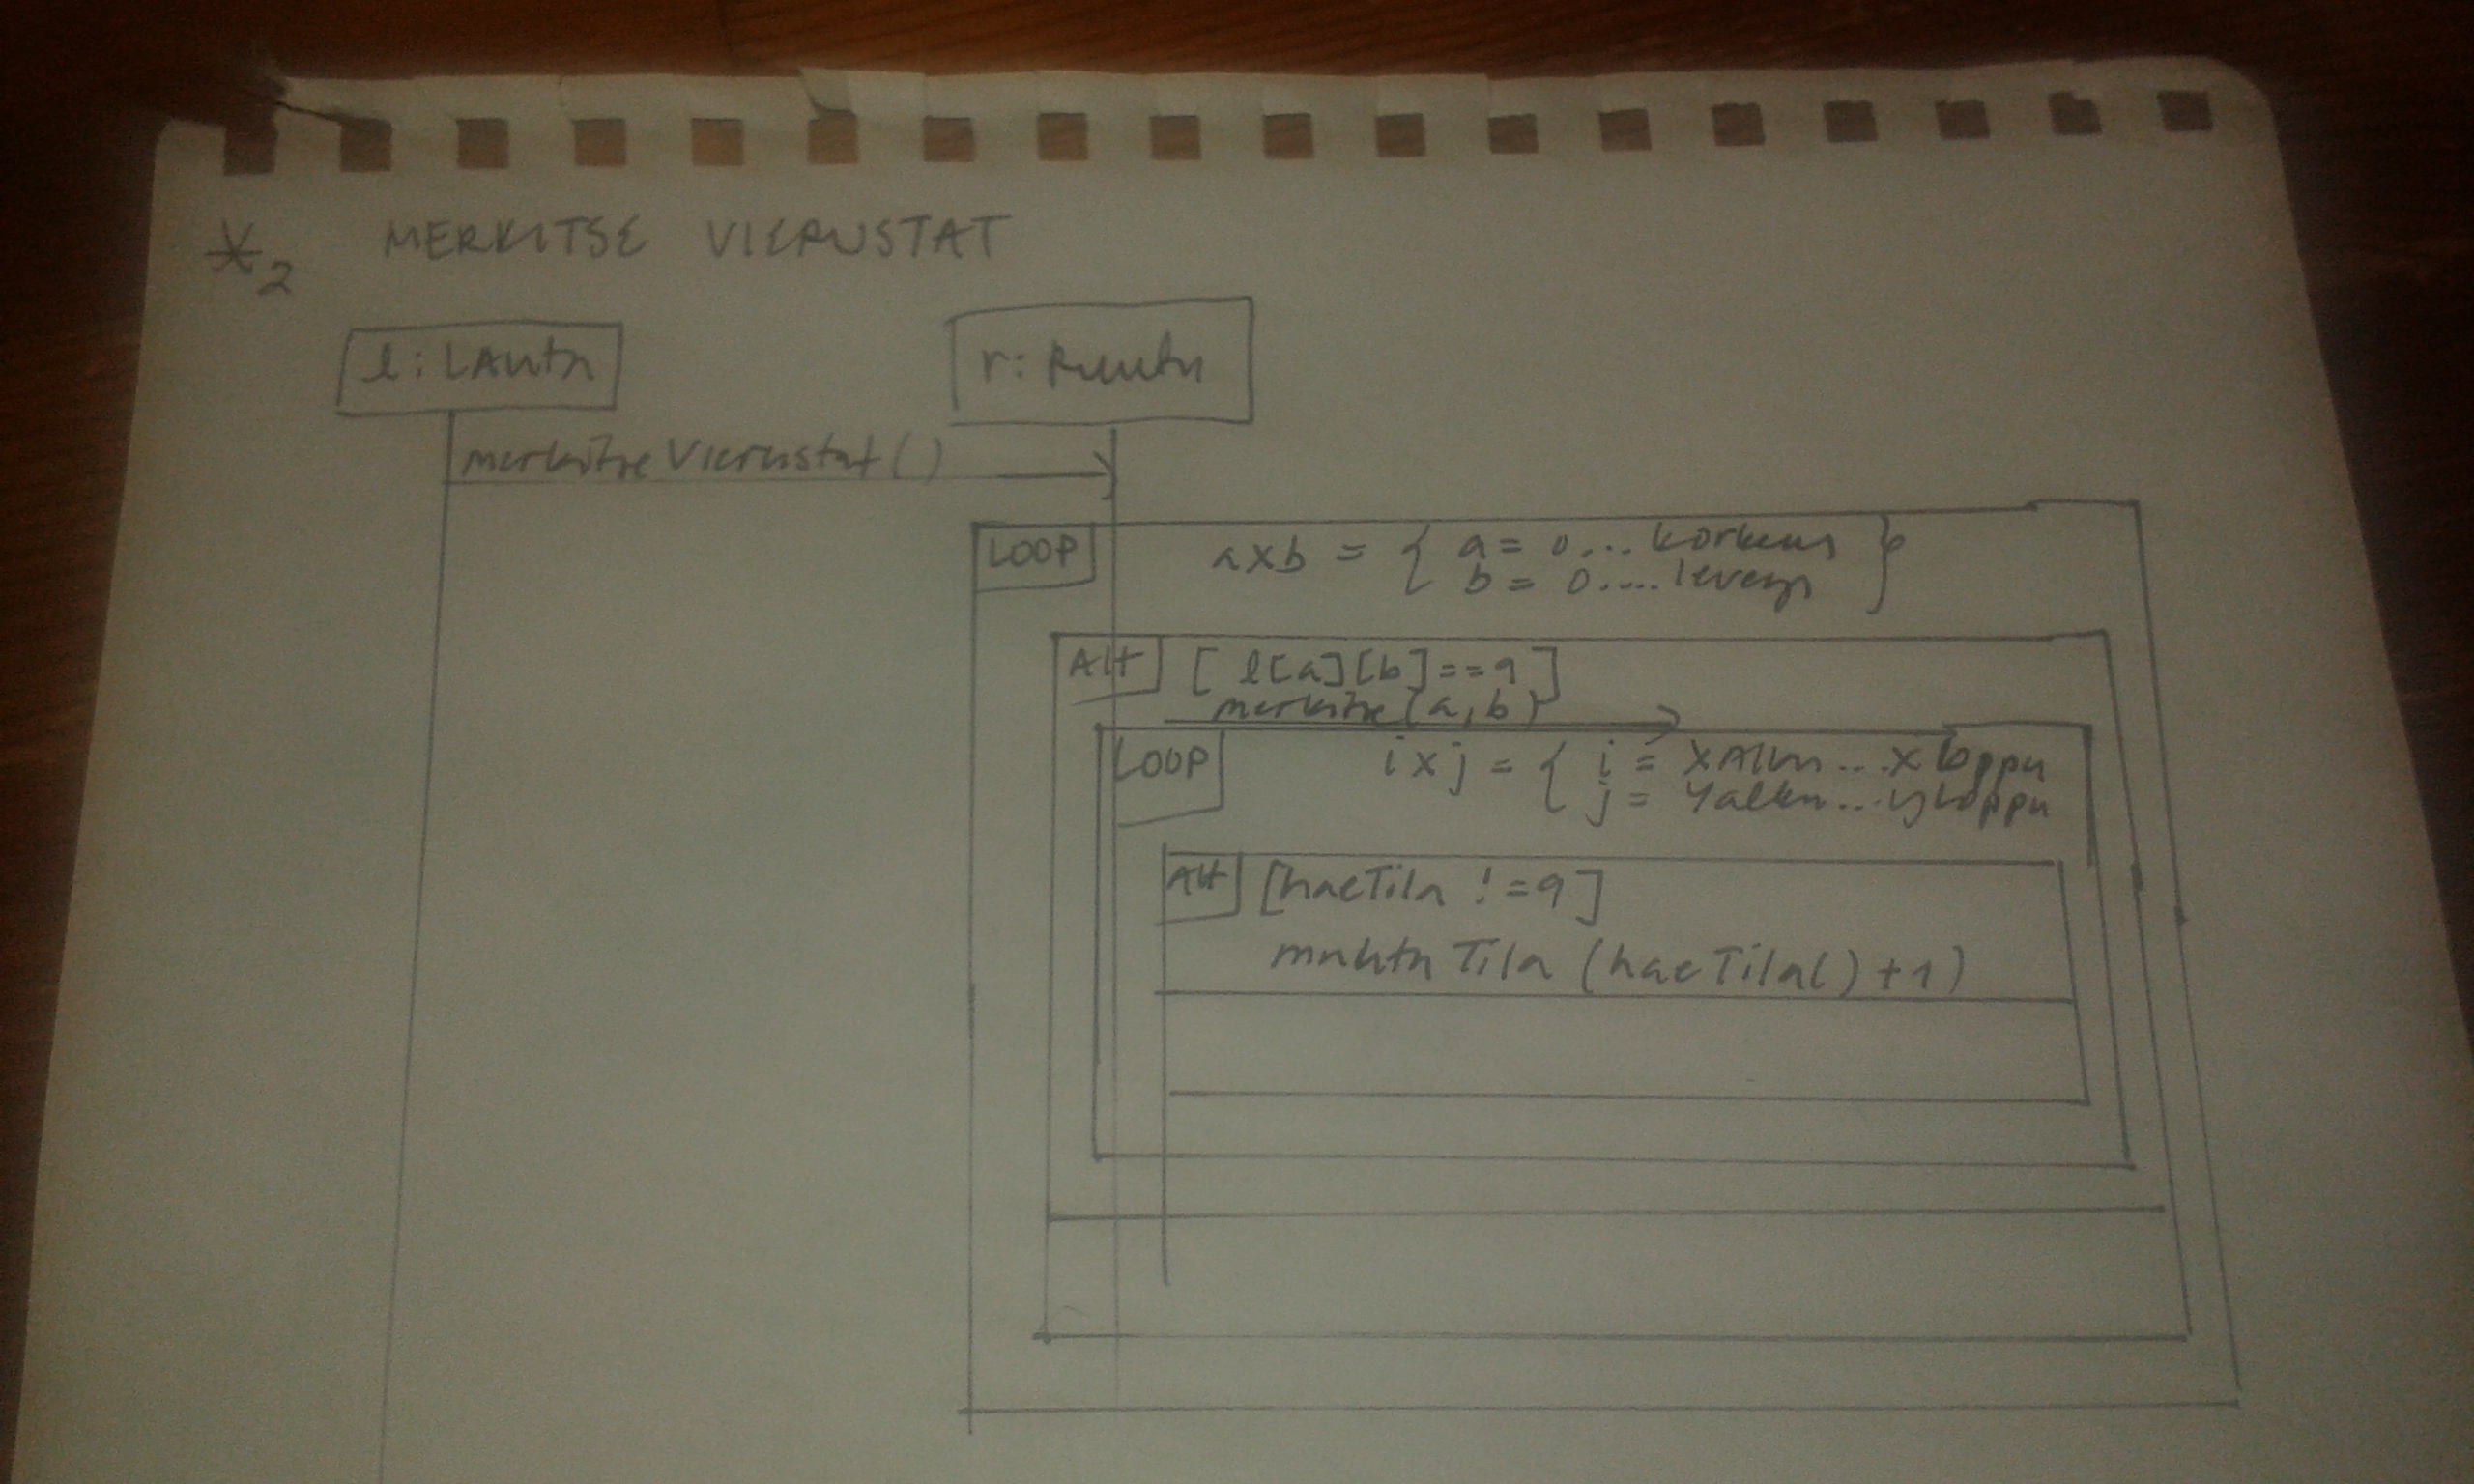 *2 MERKITSE VIERUSTAT
l: LAUTA
r: Ruutu
merkitseVierustat()
LOOP
axb = { a = 0... korkeus
b = 0.... leveys }
Alt
[l[a][b]==9]
merkitse(a,b)
LOOP
ixj = { i = xAlku...xloppu
j = yalku...yloppu
Alt
[haeTila != 9]
muutaTila(haeTila()+1)